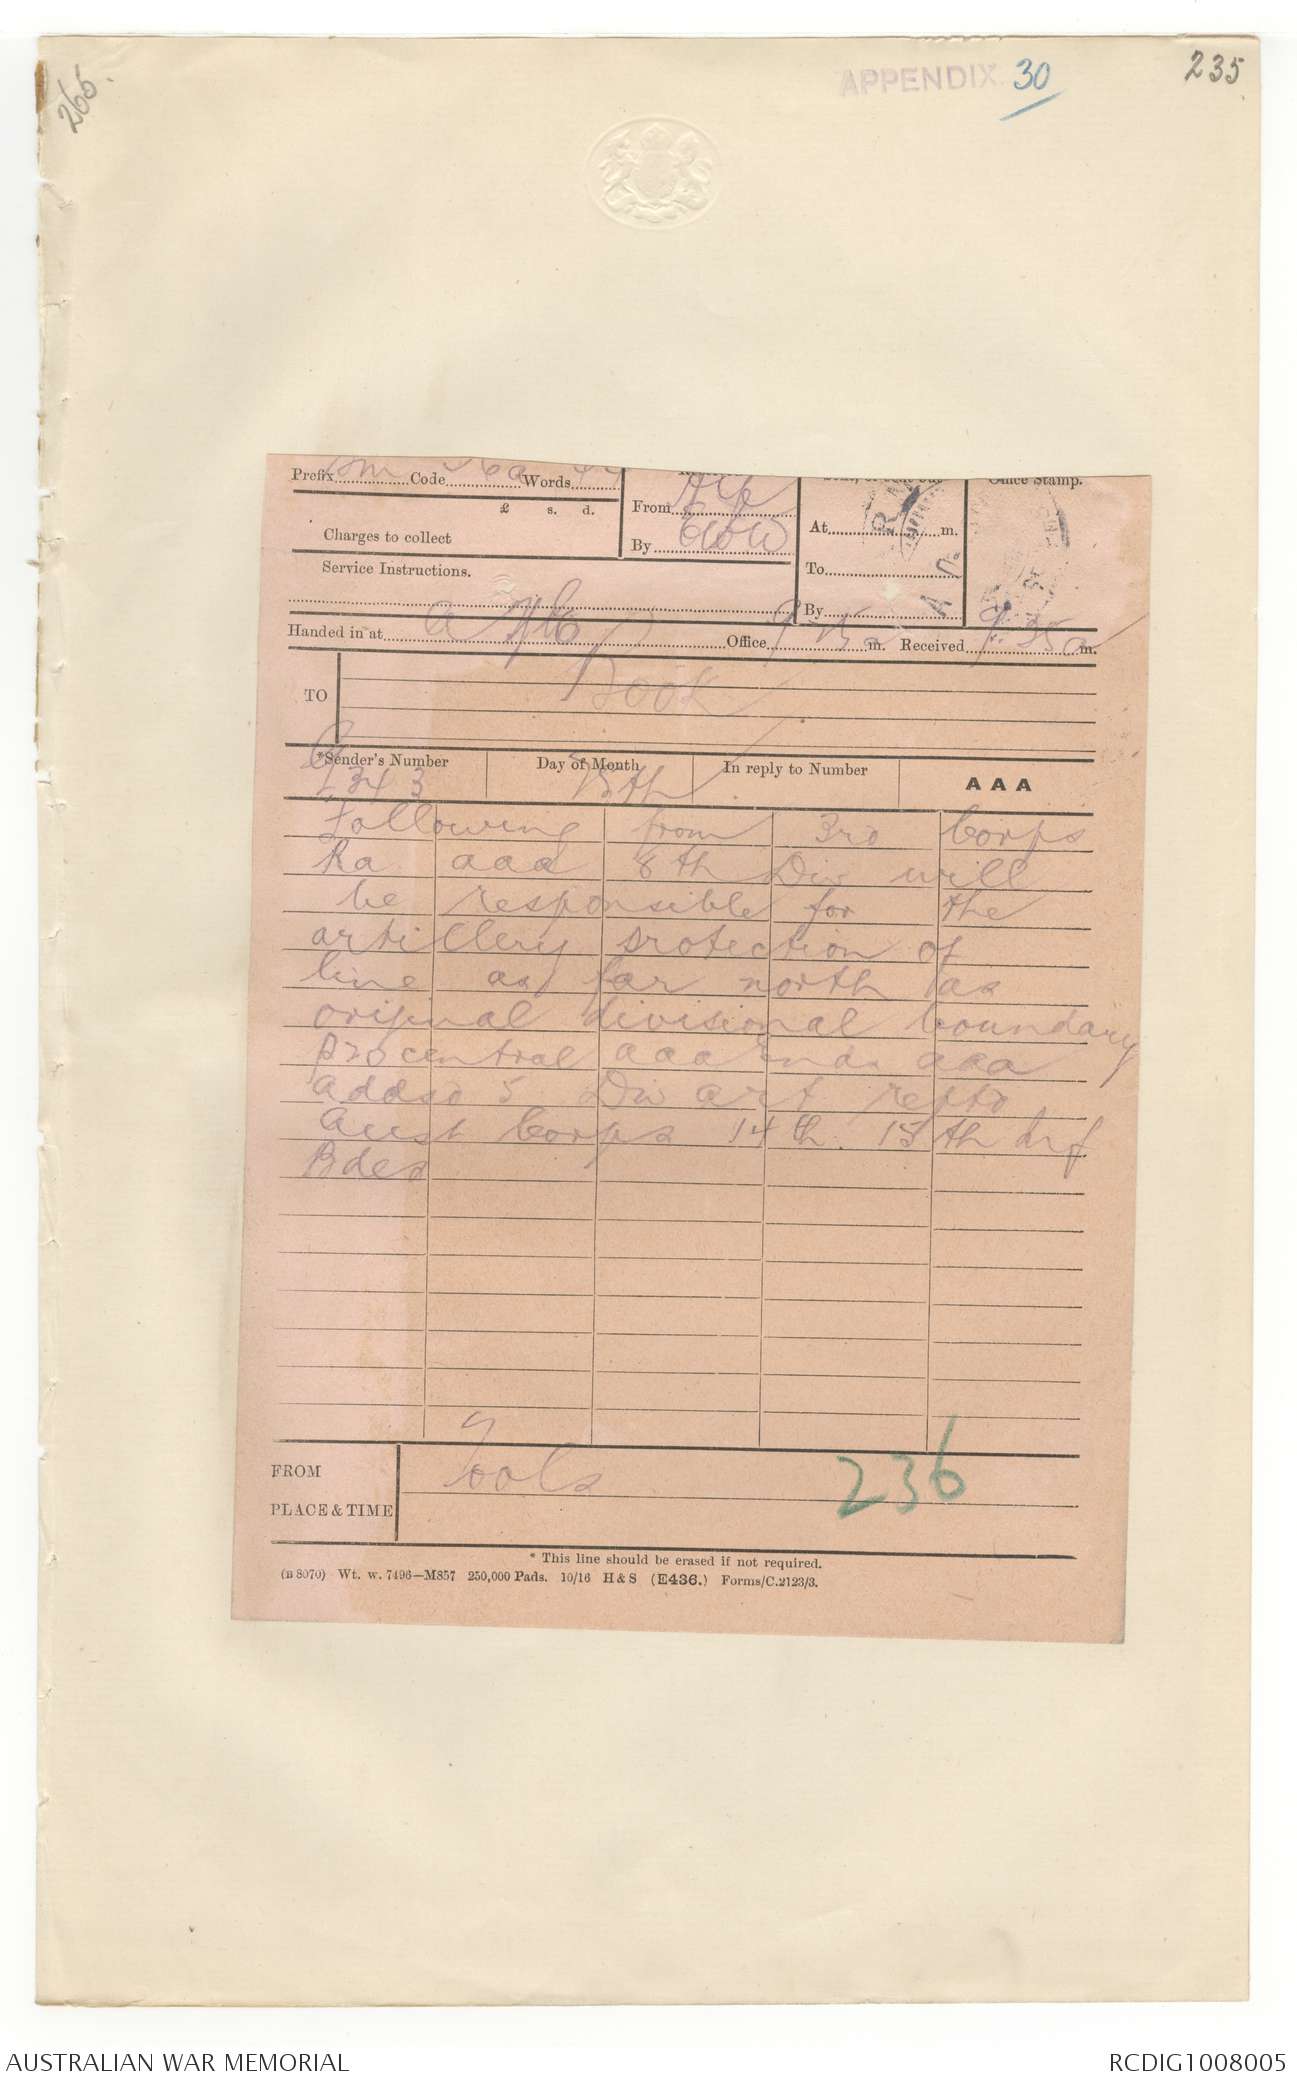 266.
APPENDIX 30
235
Prefix Sm Code Words
£ s. d.
Charges to collect
Service Instructions.
From
By
At m.
To
By
Office Stamp.
Handed in at Office 9.15a m. Received 9.35a m.
TO Dook
*Sender's Number Day of Month In reply to Number AAA
G 343 15th
Following from 3rd Corps
Ra aaa 8th Div will
be responsible for the
artillery protection of
line as far north as
original divisional boundary
P20 central aaa ends aaa
addsd 5 Div art reptd
Aust Corps 14th. 15th Inf
Bdes
FROM
PLACE & TIME
236
* This line should be erased if not required.
(B 8070) Wt. w. 7496—M857 250,000 Pads. 10/16 H & S (E436.) Forms/C.2123/3.
AUSTRALIAN WAR MEMORIAL
RCDIG1008005